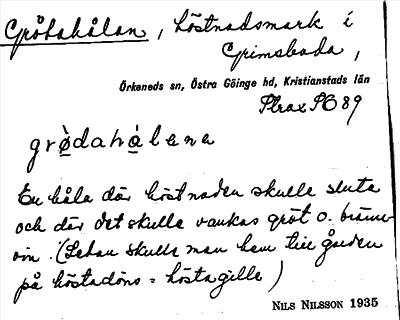 Grötahålan, höstnadsmark i
Grimsboda,
Örkeneds sn, Östra Göinge hd, Kristianstads län
Strax SO 89
grø̀dahàlena
En håla där höstnaden skulle sluta
och där det skulle vankas gröt o. bränne-
vin. (Sedan skulle man hem till gården
på höstadöns = höstagille)
NILS NILSSON 1935